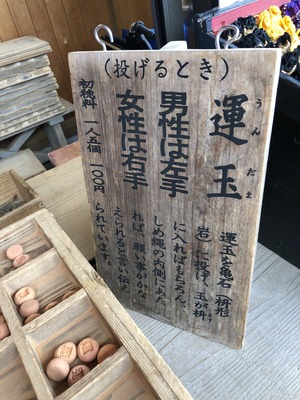 運玉
うんだま
運玉を亀石(枡形
岩)に投げ、玉が枡
に入ればもちろん、
しめ縄の内側にあた
れば、願い事がかな
えられると言い伝え
られています。
(投げるとき)
男性は左手
女性は右手
初穂料 一人五個 一〇〇円